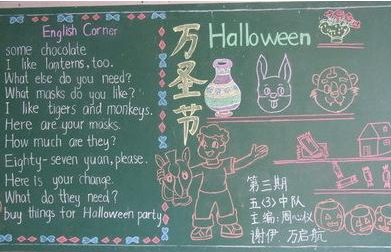 English Corner
some chocolate
I like lanterns. too.
What else do you need?
What masks do you like?
I like tigers and monkeys.
Here are your masks.
How much are they?
Eighty-seven yuan, please.
Here is your change.
What do they need?
buy things for Halloween party
万圣节
Halloween
第三期
五(3)中队
主编:周心仪
谢伊、万启航